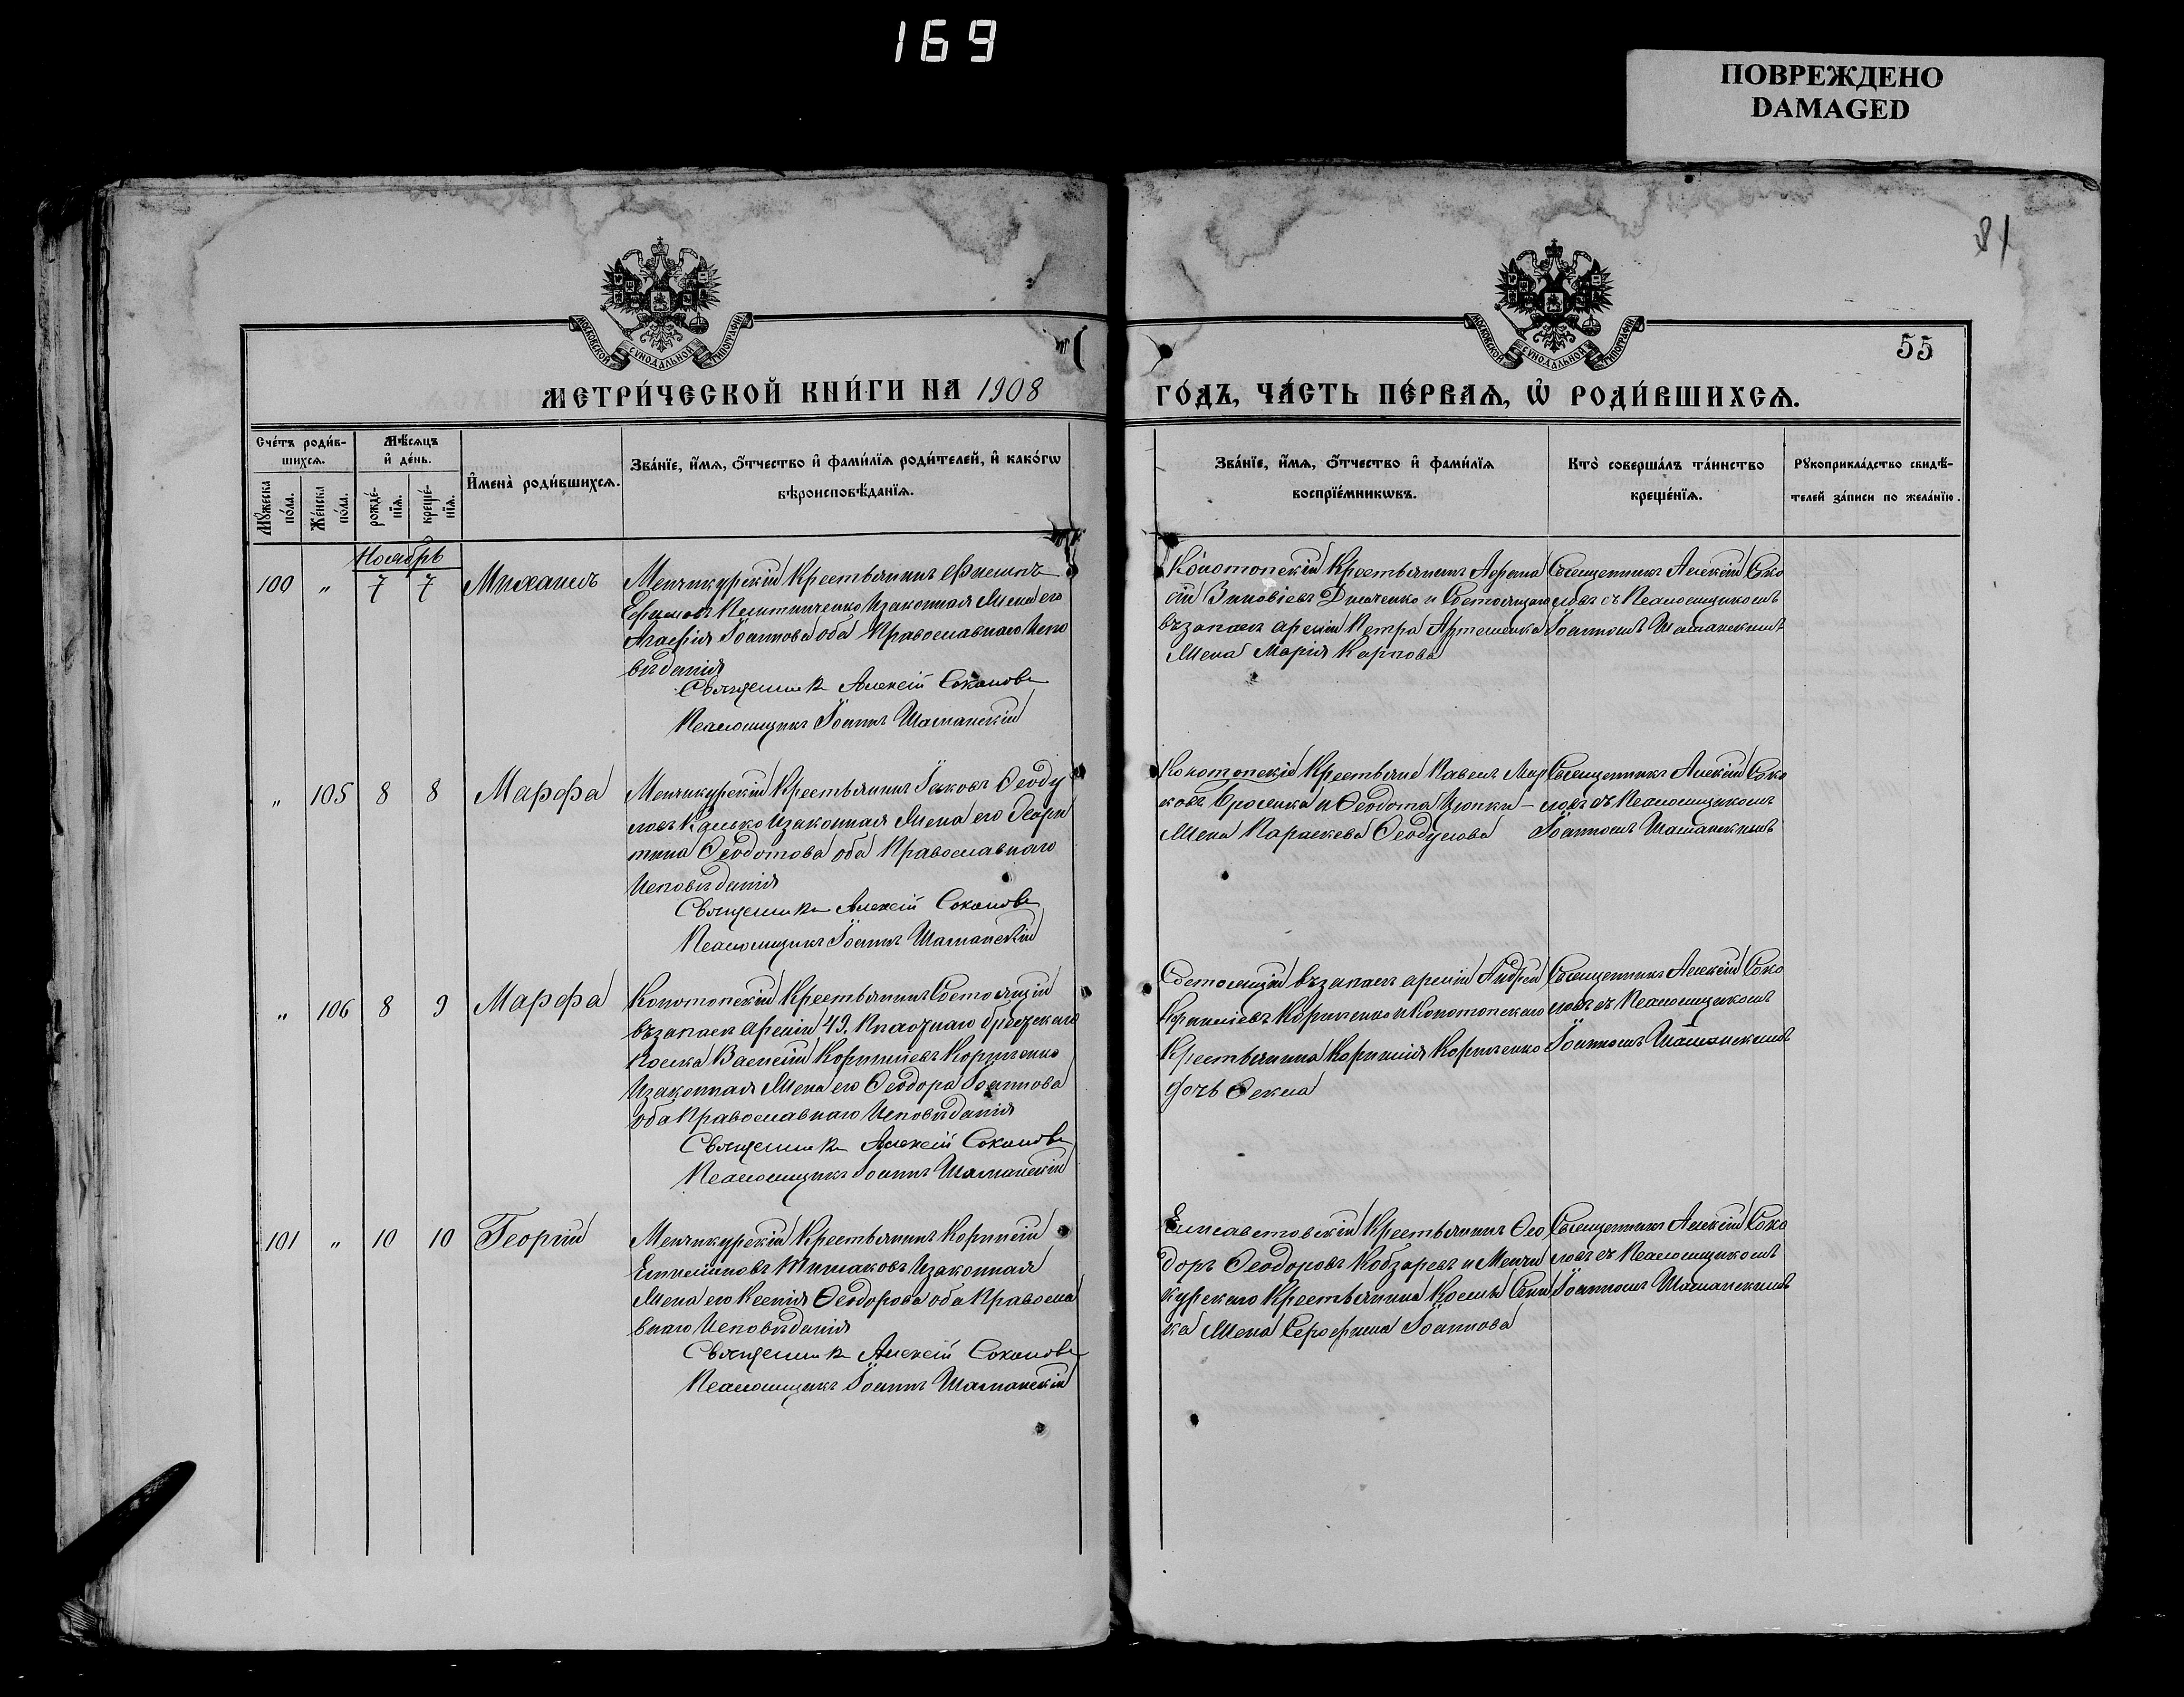 169
ПОВРЕЖДЕНО
DAMAGED
81
55
МОСКОВСКОЙ СѴНОДАЛЬНОЙ ТИПОГРАФІИ
МОСКОВСКОЙ СѴНОДАЛЬНОЙ ТИПОГРАФІИ
МЕТРИ́ЧЕСКОЙ КНИ́ГИ НА 1908
ГО́ДЪ, ЧА́СТЬ ПЕ́РВАѦ, Ѡ҆ РОДИ́ВШИХСѦ.
Сче́тъ роди́в-
шихсѧ.
Мꙋ́жеска по́ла.
Же́нска по́ла.
Мѣ́сѧцъ
и҆ де́нь.
рожде́-нїѧ.
креще́-нїѧ.
И҆мена̀ роди́вшихсѧ.
Зва́нїе, и҆́мѧ, ѻ҆́тчество и҆ фами́лїѧ роди́телей, и҆ како́гѡ
вѣроисповѣ́данїѧ.
Зва́нїе, и҆́мѧ, ѻ҆́тчество и҆ фами́лїѧ
воспрїе́мникѡвъ.
Кто̀ соверша́лъ та́инство
креще́нїѧ.
Рꙋкоприкла́дство свидѣ́-
телей за́писи по жела́нїю.
Ноябрь
100 " 7 7 Михаилъ
Менчикурскій Крестьянинъ Филипъ
Ефимовъ изаконная Жена его
Агафія Іоаннова оба Православнаго Испо
вѣданія
Священникъ Алексій Соколовъ
Псаломщикъ Іоаннъ Шаманскій
Конотопскій Крестьянинъ Афана
сій Зиновіевъ Дяченко и Состоящаго
въ запасѣ арміи Петра Артеменка
Жена Марія Карпова
Священникъ Алексій Соко
ловъ съ Псаломщикомъ
Іоанномъ Шаманскимъ
" 105 8 8 Марфа
Менчикурскій Крестьянинъ Іаковъ Ѳеоду
ловъ изаконная Жена его Хари
тина Ѳеодотова оба Православнаго
Исповѣданія
Священникъ Алексій Соколовъ
Псаломщикъ Іоаннъ Шаманскій
Конотопскіе Крестьяне Павелъ Мар
ковъ и Ѳеодота Цюпки –
Жена Параскева Ѳеодулова
Священникъ Алексій Соко
ловъ съ Псаломщикомъ
Іоанномъ Шаманскимъ
" 106 8 9 Марфа
Конотопскій Крестьянинъ Состоящій
въ запасѣ арміи 49.
Василій Корниліевъ Корниенко
Изаконная Жена его Ѳеодора Іоаннова
оба Православнаго Исповѣданія
Священникъ Алексій Соколовъ
Псаломщикъ Іоаннъ Шаманскій
Состоящій въ запасѣ арміи Андрей
Корниліевъ Корниенко и Конотопскаго
Крестьянина Корнилія Корниенко
дочь Ѳекла
Священникъ Алексій Соко
ловъ съ Псаломщикомъ
Іоанномъ Шаманскимъ
101 " 10 10 Георгій
Менчикурскій Крестьянинъ Корнилій
изаконная
Жена его Ксенія Ѳеодорова оба Правосла
внаго Исповѣданія
Священникъ Алексій Соколовъ
Псаломщикъ Іоаннъ Шаманскій
Елисаветовскій Крестьянинъ Ѳео
доръ Ѳеодоровъ Кобзаревъ и Менчи
курскаго Крестьянина Космы
Жена Серафима Іоаннова
Священникъ Алексій Соко
ловъ съ Псаломщикомъ
Іоанномъ Шаманскимъ